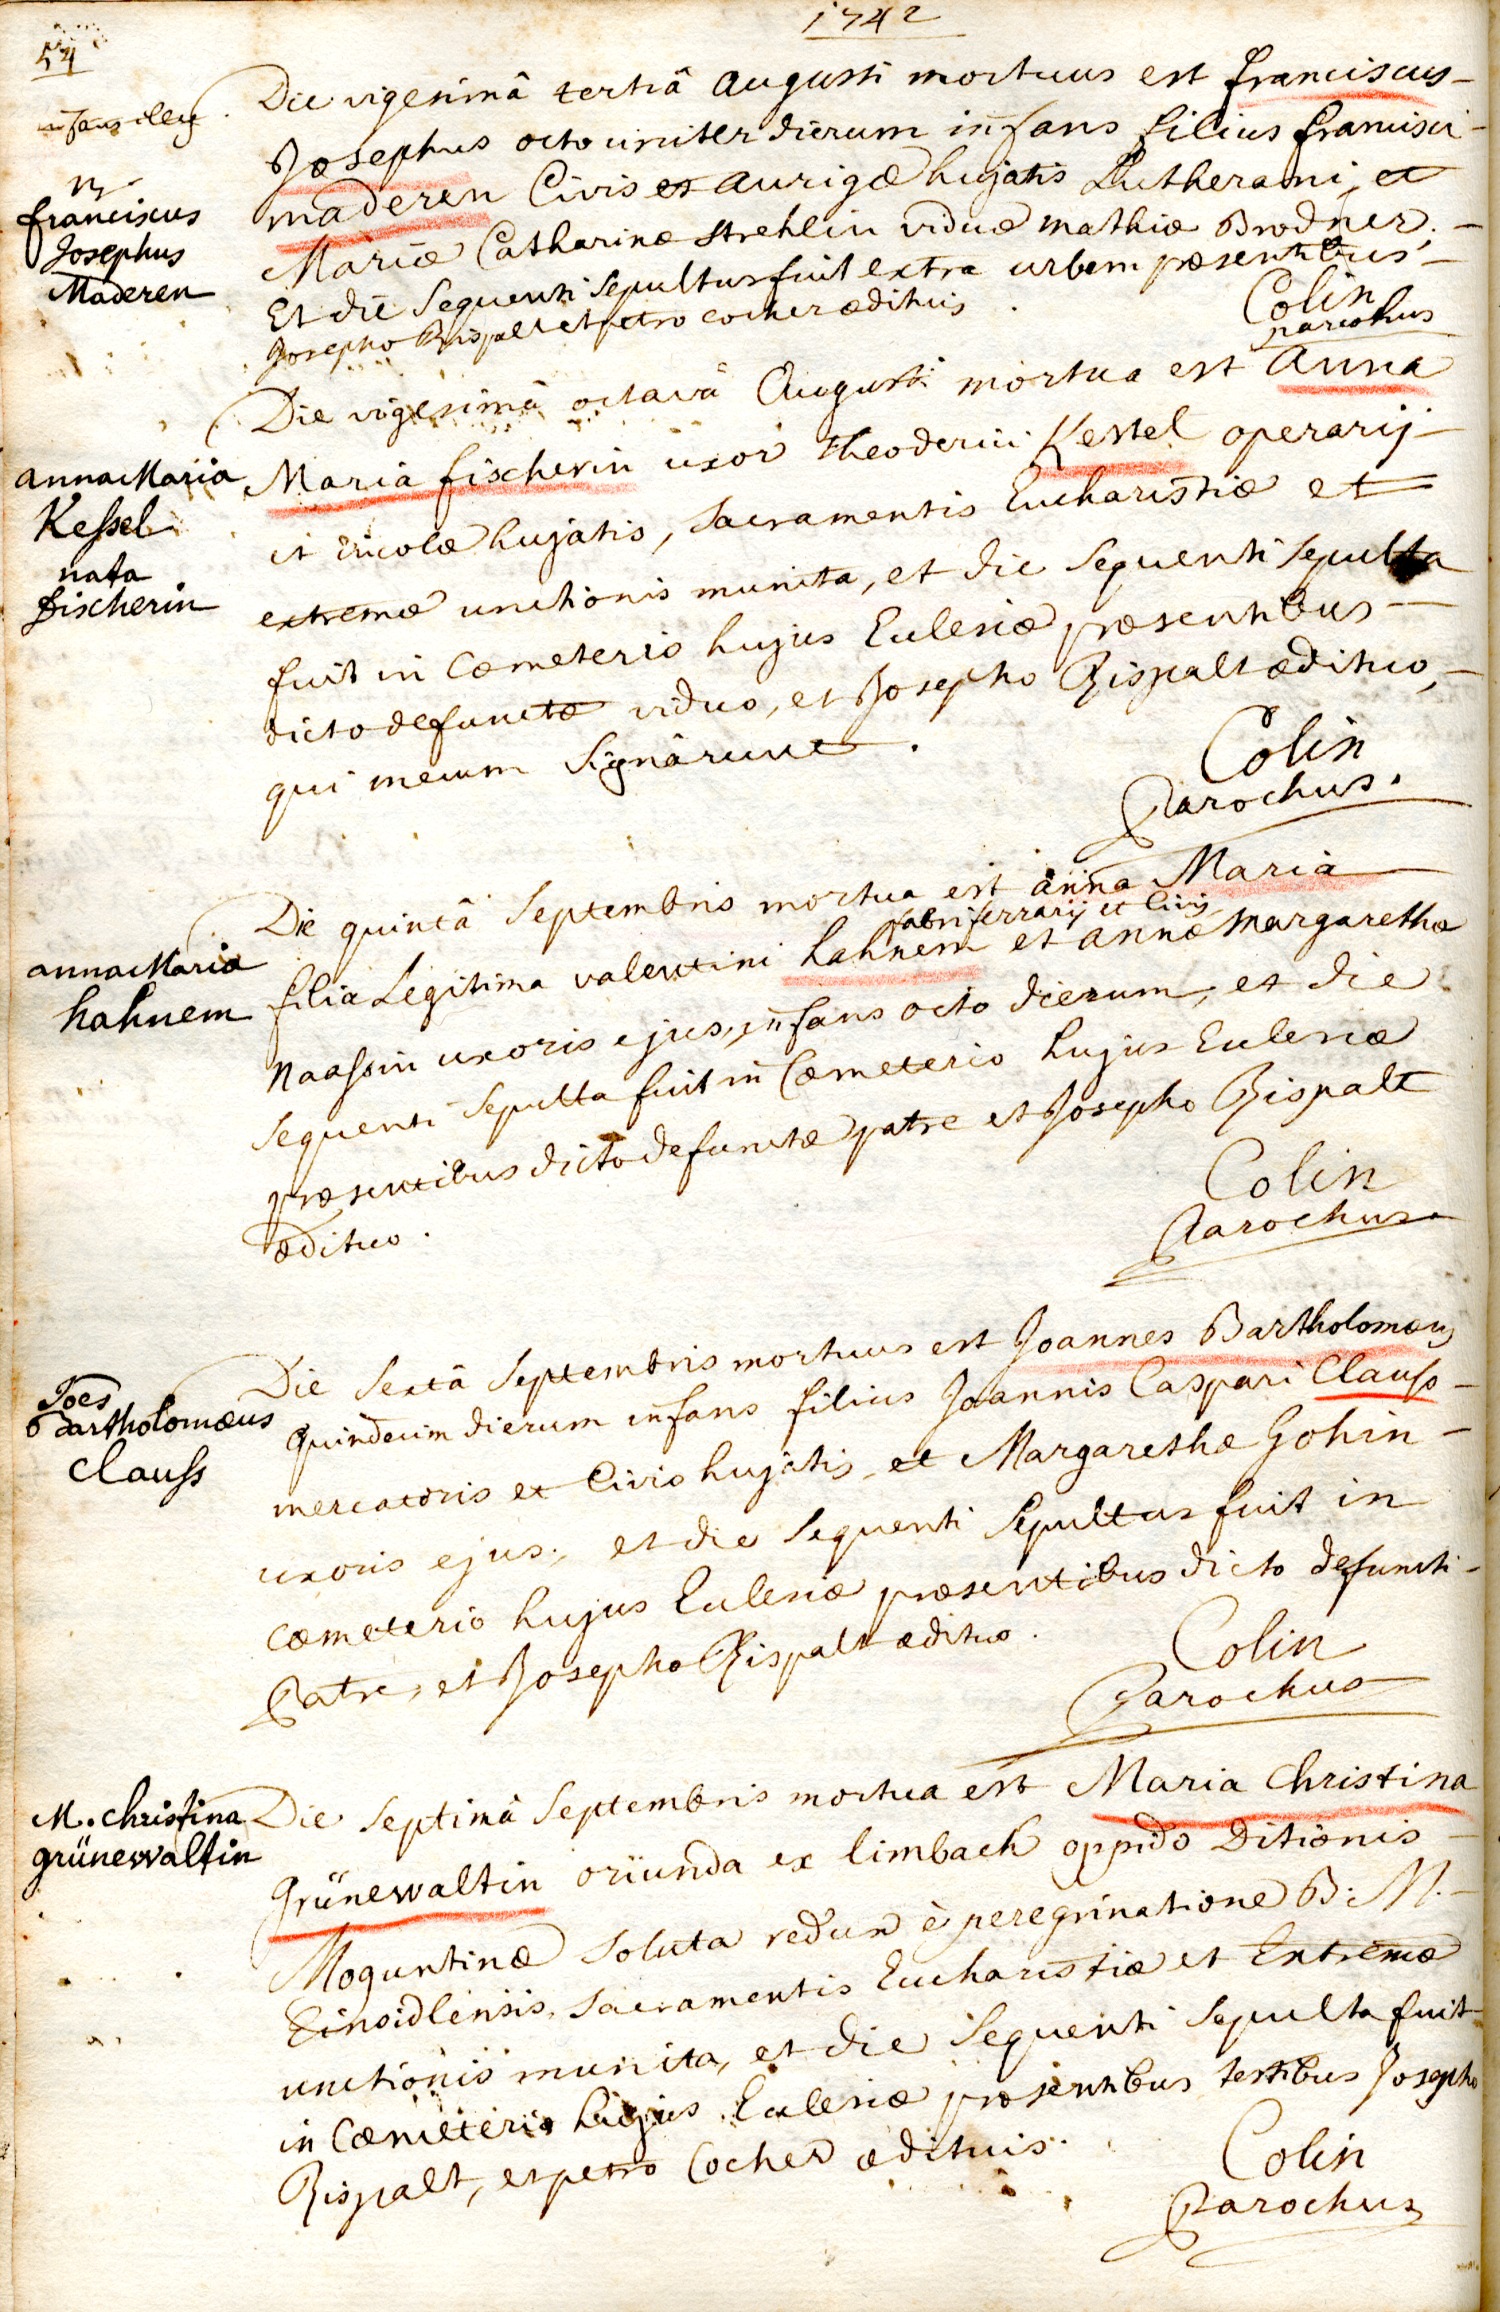 1742
54
Die vigesimâ tertiâ Augusti mortuus est franciscus
Josephus octo circiter dierum infans filius francisci
franciscus
Josephus
Maderen
maderen Civis et aurigæ hujatis Lutherani, et
Mariæ Catharinæ strehlin viduæ mathiæ Brodner.
Et die sequenti sepultus fuit extra urbem præsentibus
Josepho Rispalt et petro cocher ædituis
Colin
parochus
Die vigesimâ octavâ Augusti mortua est Anna
Maria fischerin uxor theoderici Kessel operarij
annaMaria
Kessel
nata
fischerin
et incolæ hujatis, sacramentis Eucharistiæ et
extremæ unctionis munita, et die sequenti sepulta
fuit in Cœmeterio hujus Ecclesiæ præsentibus
dicto defunctæ viduo, et Josepho Rispalt ædituo,
qui mecum signârunt.
Colin
Parochus.
Die quintâ Septembris mortua est anna Maria
fabri ferrarij et Civis
filia Legitima valentini hahnem et annæ Margarethæ
annaMaria
hahnem
Naassin uxoris ejus, infans octo dierum, et die
sequenti sepulta fuit in Cœmeterio hujus Ecclesiæ
præsentibus dicto defunctæ patre et Josepho Rispalt
ædituo.
Colin
Parochus
Die sextâ Septembris mortuus est Joannes Bartholomæus
Joes
Bartholomæus
Clauss
quindecim dierum infans filius Joannis Caspari Clauss
mercatoris et Civis hujatis, et Margarethæ Gohin
uxoris ejus, et die sequenti sepultus fuit in
cœmeterio hujus Ecclesiæ præsentibus dicto defuncti
Patre, et Josepho Rispalt ædituo.
Colin
Parochus
M. christina
grünewaltin
Die septimâ Septembris mortua est Maria Christina
Grünewaltin oriunda ex limbach oppido Ditionis
Moguntinæ soluta redux è peregrinatione B. M.
Einsidlensis, sacramentis Eucharistiæ et Extremæ
unctionis munita, et die sequenti sepulta fuit
in Cœmeterio hujus Ecclesiæ præsentibus testibus Josepho
Rispalt, et petro Cocher ædituis.
Colin
Parochus